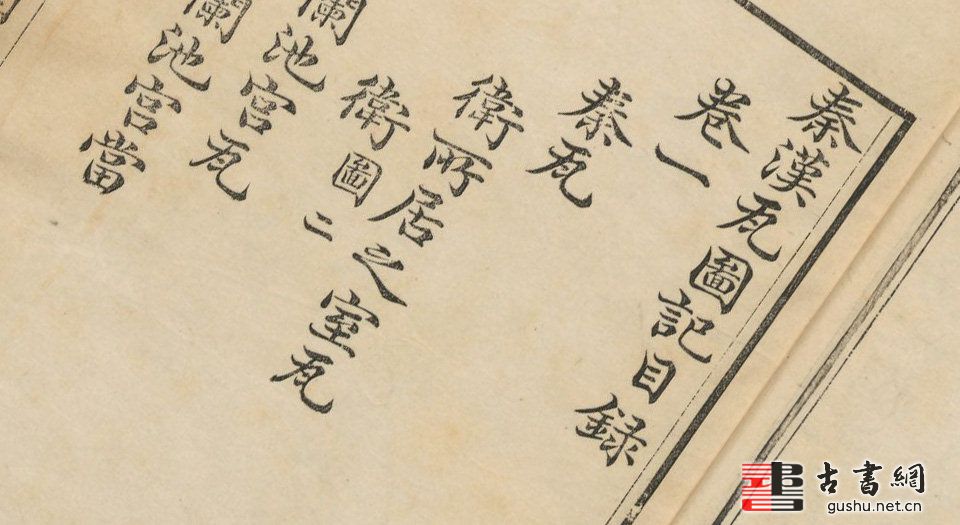 秦漢瓦圖記目録
卷一
秦瓦
衛所居之室瓦
衛圖二
蘭池宮瓦
蘭池宮當
古書網
gushu.net.cn